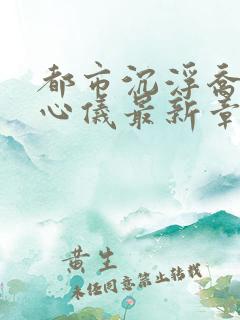 都市沉浮乔
心仪最新章
黄生
未经同意禁止转载